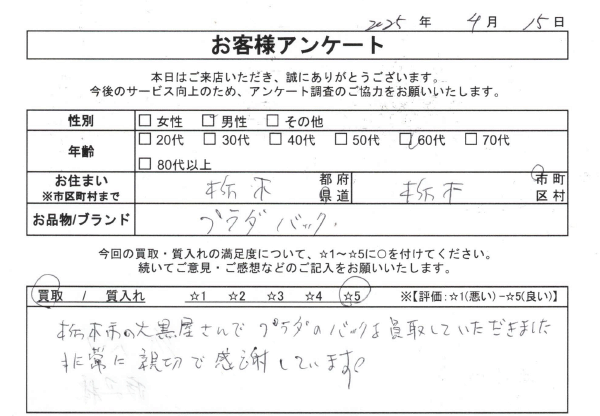 2025年 4月 15日
お客様アンケート
本日はご来店いただき、誠にありがとうございます。
今後のサービス向上のため、アンケート調査のご協力をお願いいたします。
性別 □ 女性 □ 男性 □ その他
年齢 □ 20代 □ 30代 □ 40代 □ 50代 □ 60代 □ 70代
□ 80代以上
お住まい ※市区町村まで 栃木 都府県道 栃木 市町区村
お品物/ブランド プラダ バック
今回の買取・質入れの満足度について、☆1~☆5に○を付けてください。
続いてご意見・ご感想などのご記入をお願いいたします。
買取 / 質入れ ☆1 ☆2 ☆3 ☆4 ☆5 ※【評価:☆1(悪い)-☆5(良い)】
栃木市の大黒屋さんで プラダのバックを買取していただきました
非常に親切で感謝しています。